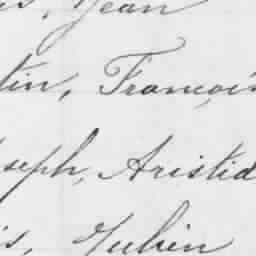 is, Jean
tin, François
oseph, Aristid
is, Jubin